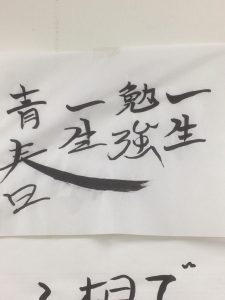 一生
勉強
一生
青春
相で